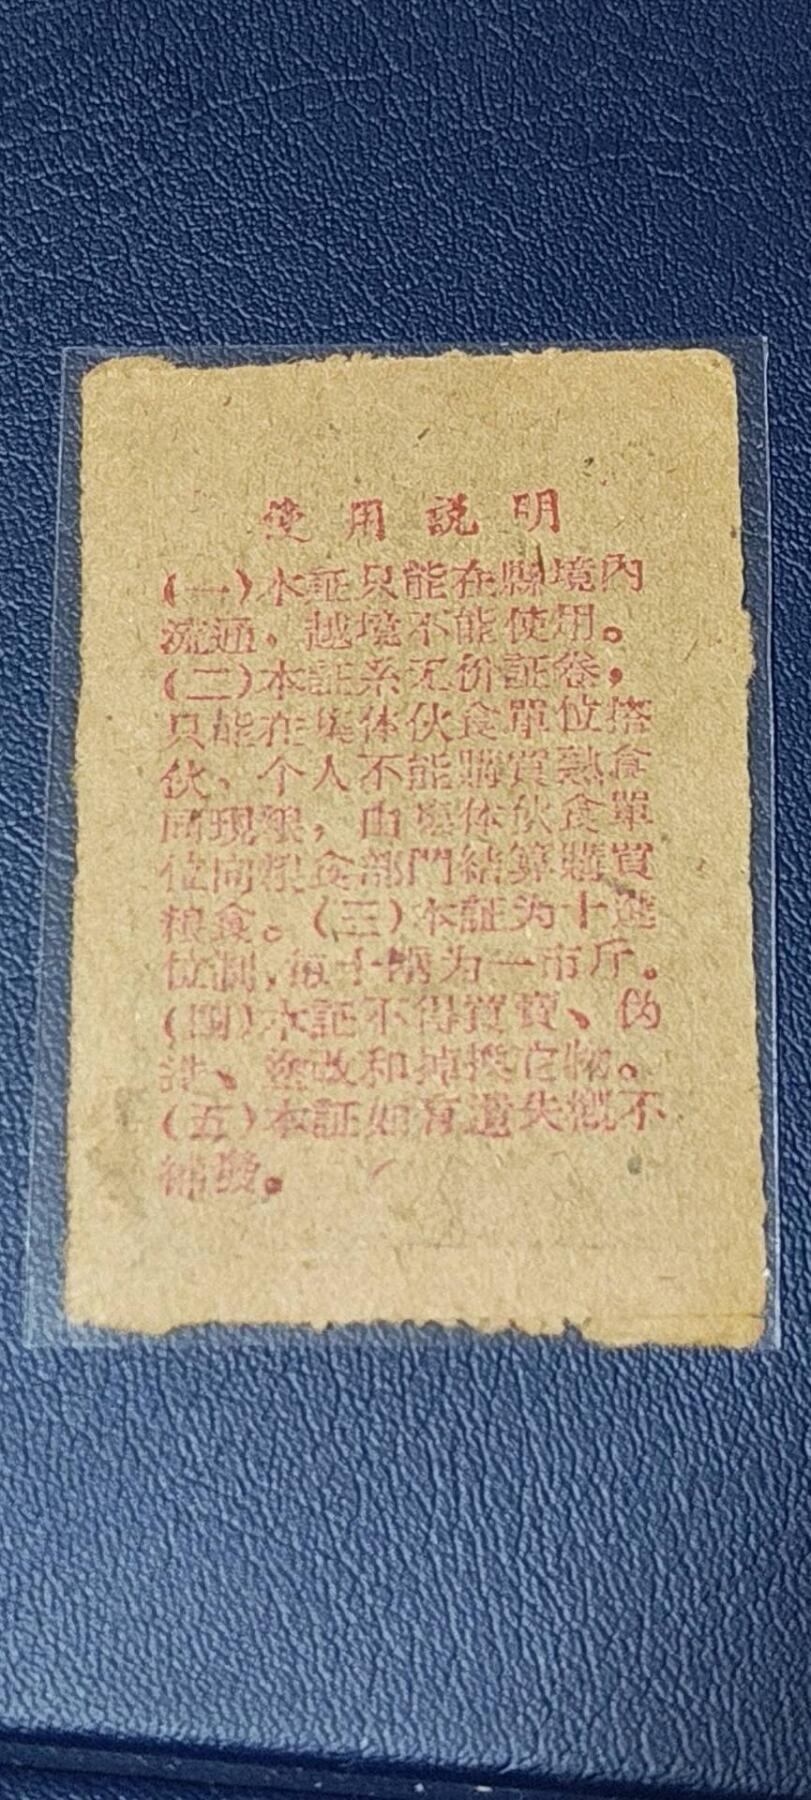 使用説明
(一)本証只能在縣境內
流通，越境不能使用。
(二)本証系无价証卷，
只能在集体伙食單位搭
伙、个人不能購買熟食
同現粮，由集体伙食單
位向粮食部門結算購買
粮食。(三)本証为十進
位制，每十両为一市斤。
(四)本証不得買賣、伪
造、塗改和掉換它物。
(五)本証如有遺失概不
補發。